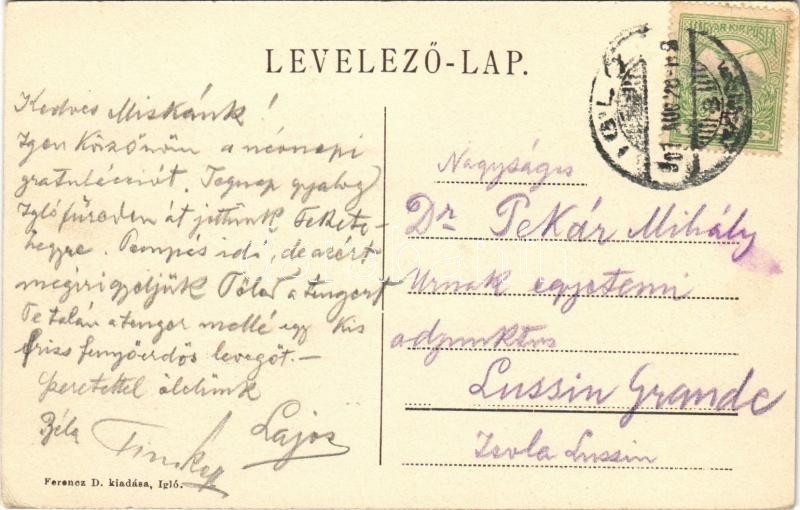 LEVELEZŐ-LAP.
MAGYAR KIR. POSTA
IGLÓ
907 AUG 28
Kedves Miskánk!
Igen köszönöm a névnapi
gratulácziót. Tegnap gyalog
Iglófüreden át jöttünk Fekete-
hegyre. Pompás idő, de azért
megirigyeljük Tőled a tengert
Te talán a tenger mellé egy kis
friss fenyőerdős levegőt.-
Szeretettel ölelünk
Béla
Lajos
Nagyságos
Dr Pekár Mihály
Urnak egyetemi
adjunktus
Lussin Grande
Isola Lussin
Ferencz D. kiadása, Igló.